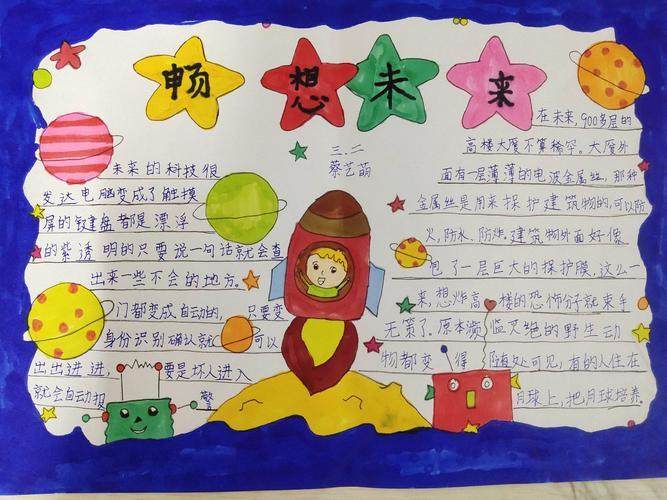 畅想未来
三.二
蔡艺萌
未来的科技很
发达电脑变成了触摸
屏的键盘都是漂浮
的紫透明的只要说一句话就会查
出来一些不会的地方。
门都变成自动的,只要变
身份识别确认就可以
出出进进,要是坏人进入
就会自动报警
在未来,900多层的
高楼大厦不算稀罕。大厦外
面有一层薄薄的电波金属丝,那种
金属丝是用来保护建筑物的,可以防
火,防水、防炸建筑物外面好像
包了一层巨大的保护膜,这么一
来,想炸高楼的恐怖分子就束手
无策了。原本濒临灭绝的野生动
物都变得随处可见,有的人住在
月球上,把月球培养。